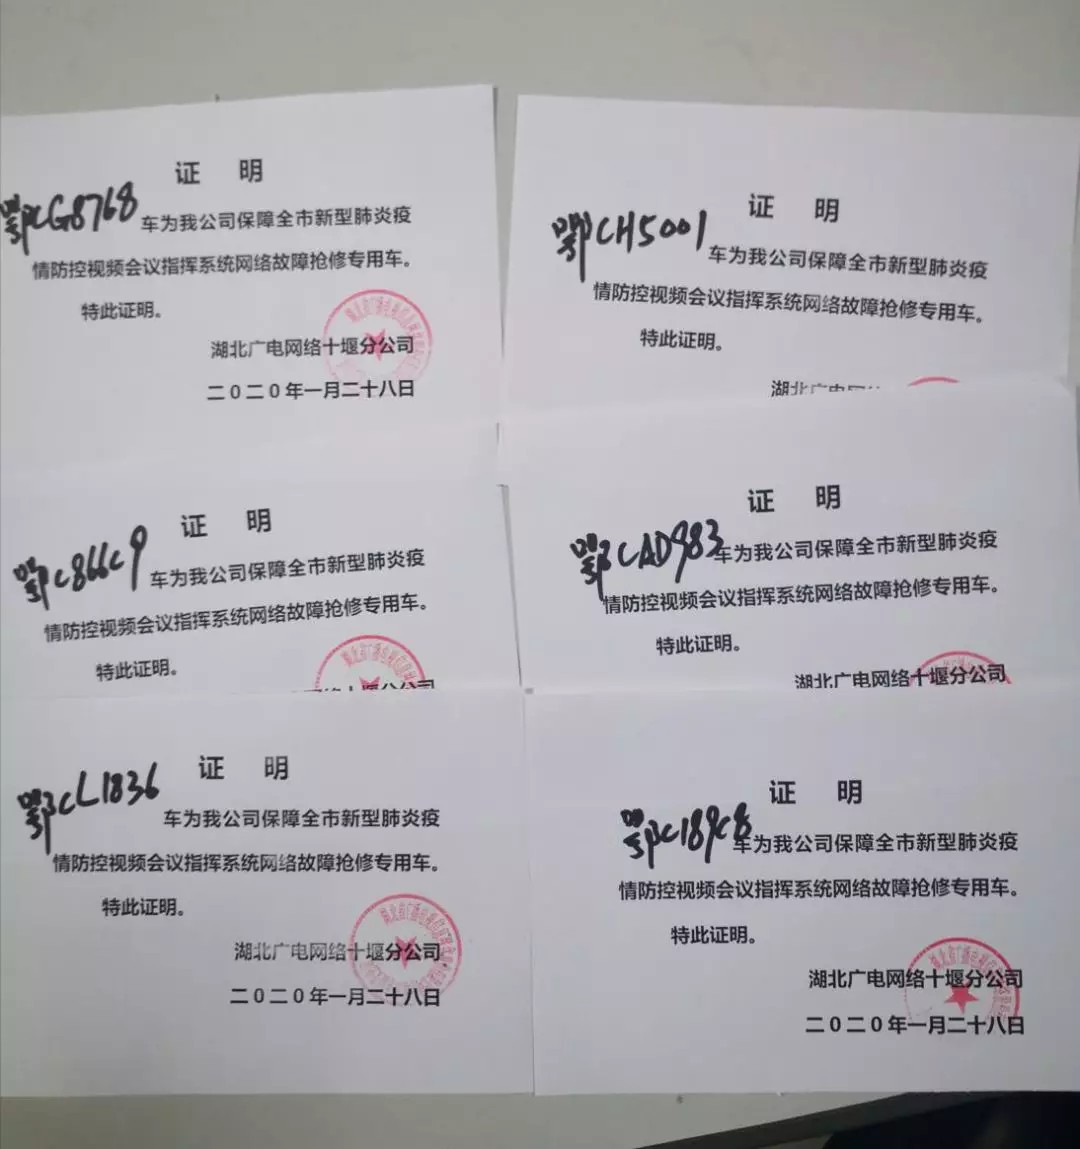 证 明
鄂CG8768 车为我公司保障全市新型肺炎疫
情防控视频会议指挥系统网络故障抢修专用车。
特此证明。
湖北广电网络十堰分公司
二0二0年一月二十八日
证 明
鄂CH5001 车为我公司保障全市新型肺炎疫
情防控视频会议指挥系统网络故障抢修专用车。
特此证明。
湖北广电
证 明
鄂C866C9 车为我公司保障全市新型肺炎疫
情防控视频会议指挥系统网络故障抢修专用车。
特此证明。
网络十堰分公司
证 明
鄂CAD983 车为我公司保障全市新型肺炎疫
情防控视频会议指挥系统网络故障抢修专用车。
特此证明。
湖北广电网络十堰分公司
证 明
鄂CL1836 车为我公司保障全市新型肺炎疫
情防控视频会议指挥系统网络故障抢修专用车。
特此证明。
湖北广电网络十堰分公司
二0二0年一月二十八日
证 明
鄂C189C8 车为我公司保障全市新型肺炎疫
情防控视频会议指挥系统网络故障抢修专用车。
特此证明。
湖北广电网络十堰分公司
二0二0年一月二十八日